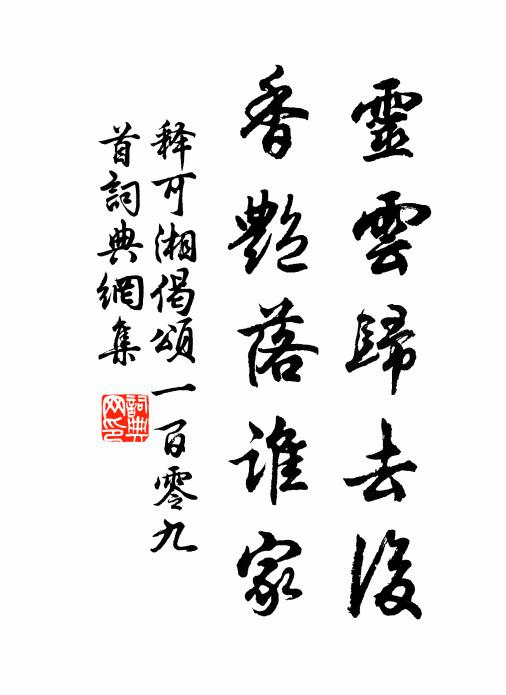 靈雲歸去後
香艷落誰家
释可湘偈頌一百零九
首詞典網集
詞典
网印